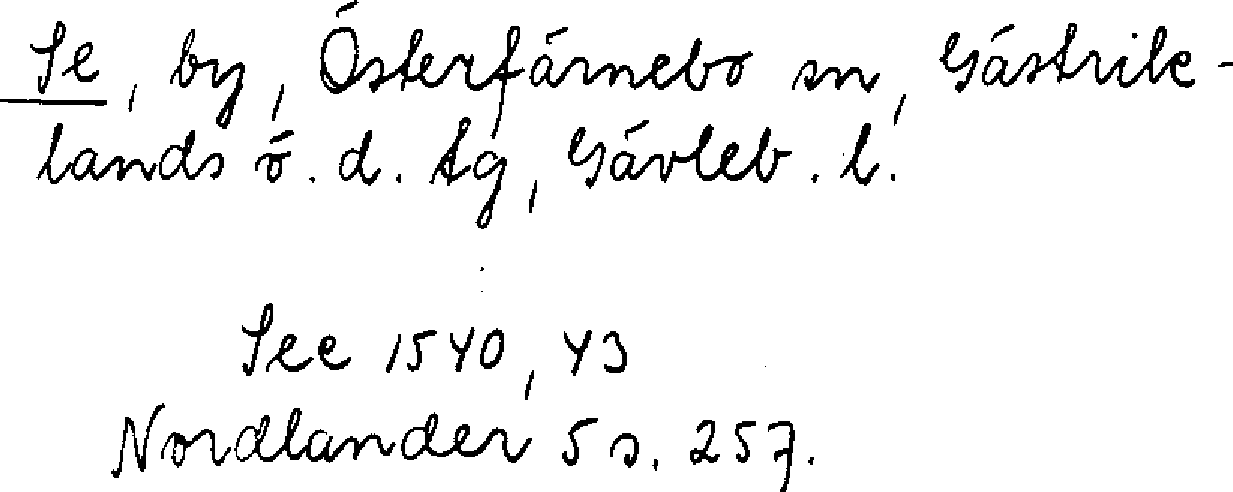 Se, by, Österfärnebo sn, Gästrik-
lands ö. d. tg, Gävleb. l.
See 1540, 43
Nordlander 5 s. 257.